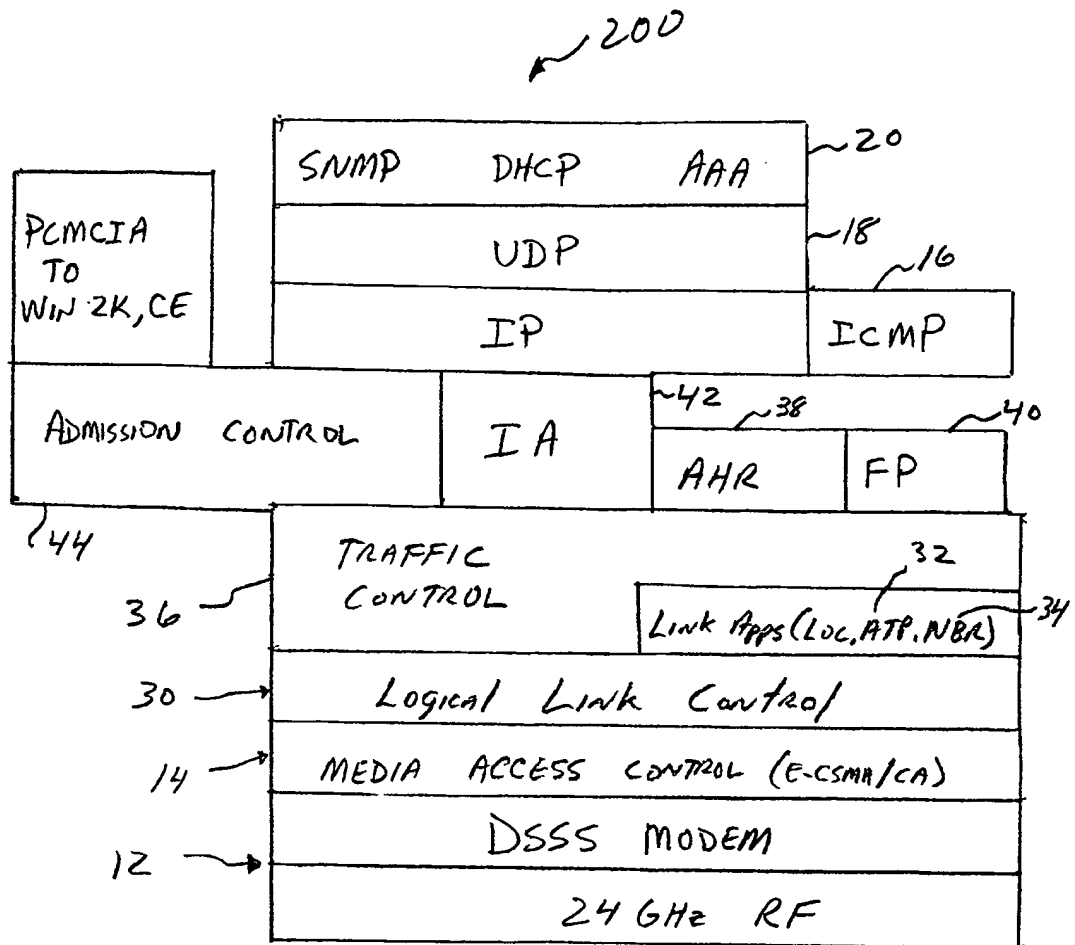 200
SNMP DHCP AAA
20
PCMCIA
TO
WIN 2K, CE
UDP
18
16
IP
ICMP
42
38
40
ADMISSION CONTROL
IA
AHR
FP
44
TRAFFIC
CONTROL
32
36
LINK APPS (LOC, ATP, NBR)
34
30
LOGICAL LINK CONTROL
14
MEDIA ACCESS CONTROL (E-CSMA/CA)
DSSS MODEM
12
24 GHz RF